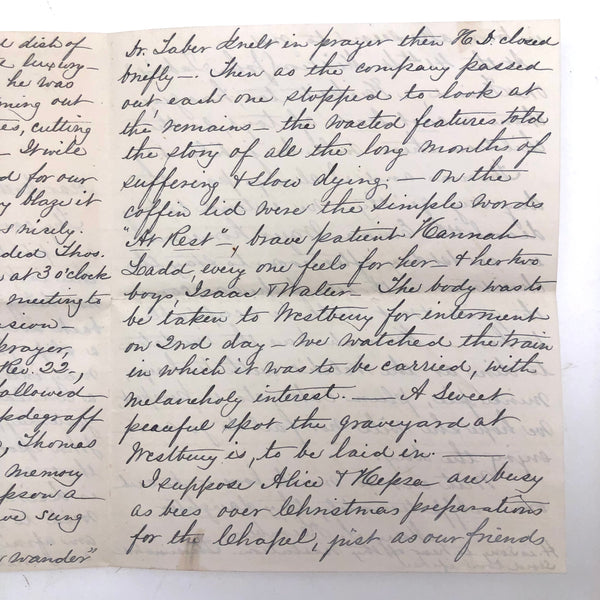 d dish of
luxury-
he was
ming out
es, cutting
- It will
d for our
y blaze it
s nicely.
ded Thos.
n at 3 o'clock
meeting to
sion -
prayer,
Rev. 22-,
ollowed -
pdegraff
, Thomas
memory
pson a
ve sung
wander"
Dr. Taber knelt in prayer then H.D. closed
briefly -. Then as the company passed
out, each one stopped to look at
the remains - the wasted features told
the story of all the long months of
suffering & slow dying; - on the
coffin lid were the simple words
"At Rest" -, brave patient Hannah
Ladd, every one feels for her - & her two
boys, Isaac & Walter - The body was to
be taken to Westbury for interment
on 2nd day - We watched the train
in which it was to be carried, with
melancholy interest. — A sweet
peaceful spot the graveyard at
Westbury is, to be laid in. —
I suppose Alice & Hepsa are busy
as bees over Christmas preparations
for the Chapel, just as our friends